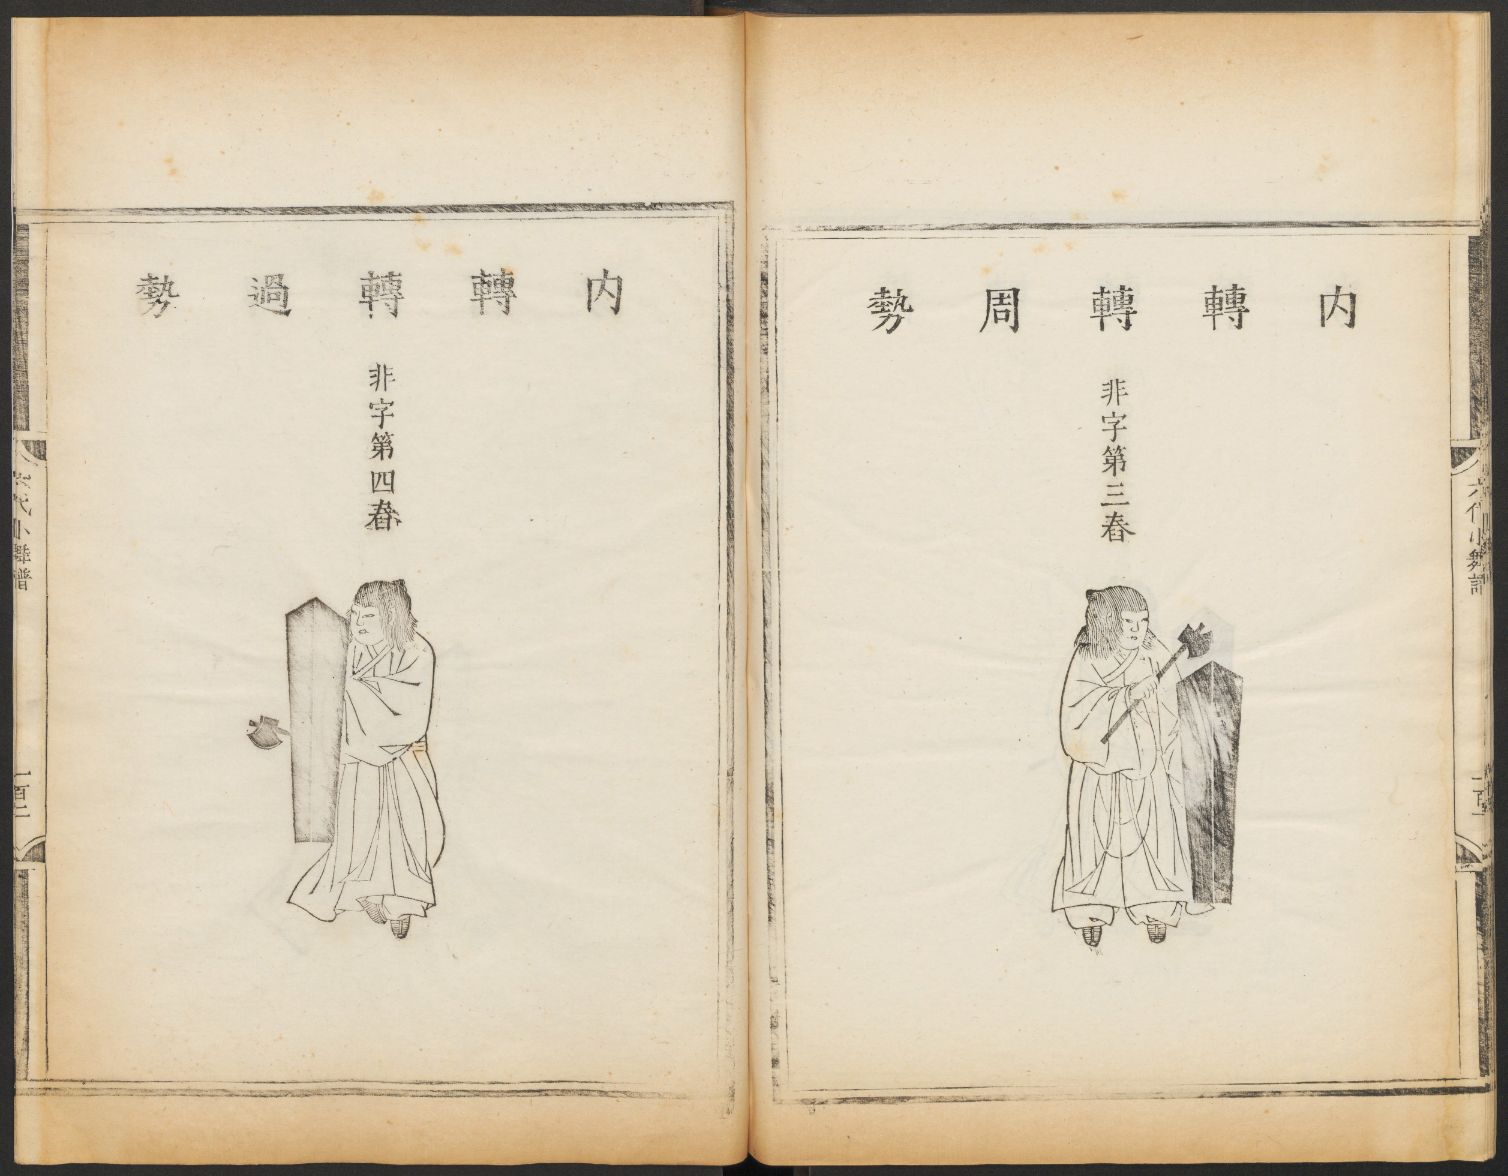 内轉轉周勢
非字第三舂
六代小舞譜
内轉轉過勢
非字第四舂
六代小舞譜
一百二